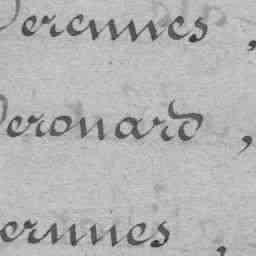 Derennes,
Deronard,
ernnes,